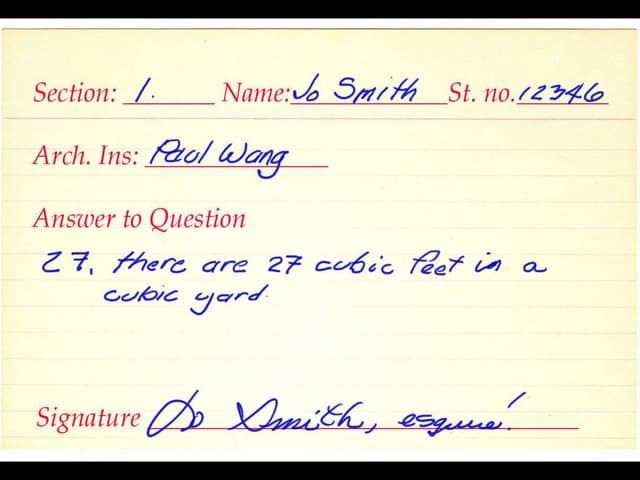 Section: 1. Name: Jo Smith St. no. 12346
Arch. Ins: Paul Wang
Answer to Question
27. there are 27 cubic feet in a
cubic yard.
Signature Jo Smith, esquire!